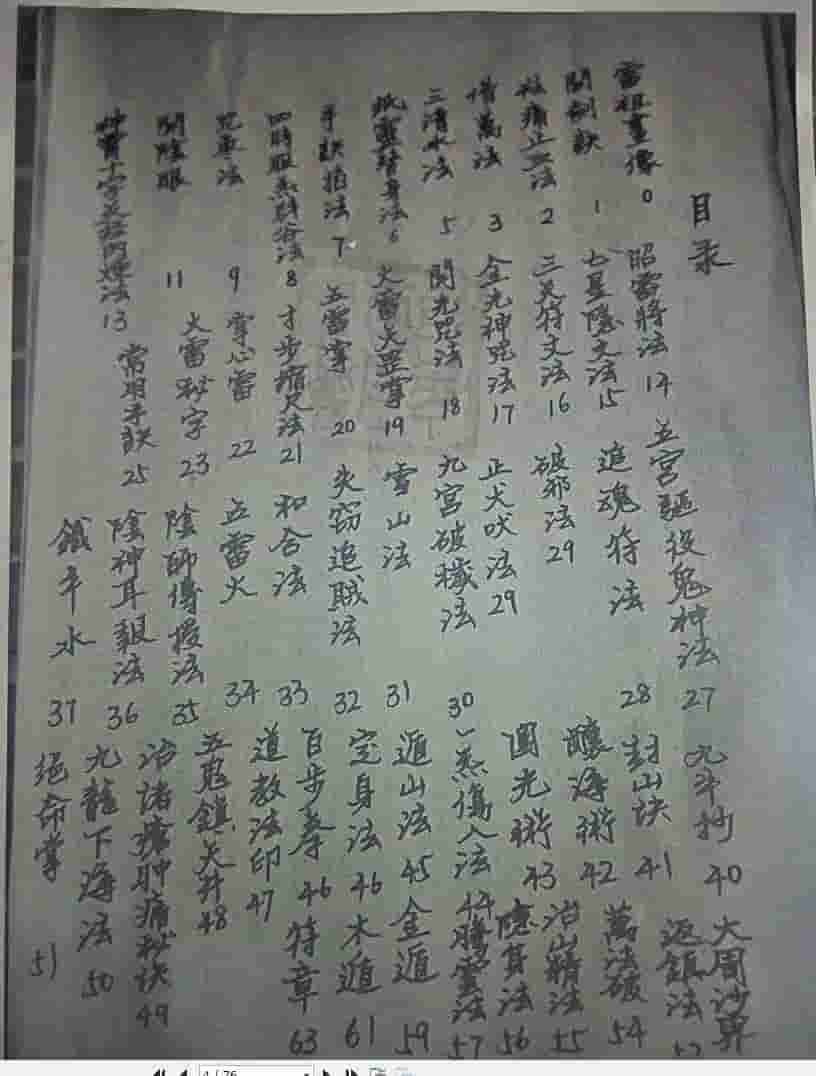 目录
雷祖畫像 0
開劍訣 1
止血法 2
借萬法 3
三清水法 5
替身法 6
手訣拍法 7
四時服炁辟谷法 8
法 9
開陰眼 11
法 13
昭雷將法 14
七星隱文法 15
三天符文法 16
金光神咒法 17
開光咒法 18
火雷火罡掌 19
五雷掌 20
寸步缩尺法 21
掌心雷 22
火雷秘字 23
常用手訣 25
五宫驅役鬼神法 27
追魂符法 28
破邪法 29
止犬吠法 29
九宫破穢法 30
雪山法 31
失窃追賊法 32
和合法 33
五雷火 34
陰師傳授法 35
陰神耳報法 36
鐵牛水 37
元辛抄 40
封山块 41
釀海術 42
圓光術 43
一炁傷人法 44
遁山法 45
定身法 46
百步拳 46
道教法印 47
五鬼鎮天井 48
治諸瘡肿痛秘诀 49
九龍下海法 50
絕命掌 51
大周沙算
返鎮法
萬法破 54
治山精法 55
隐身法 56
騰雲法 57
金遁 59
木遁 61
符章 63
4 / 76